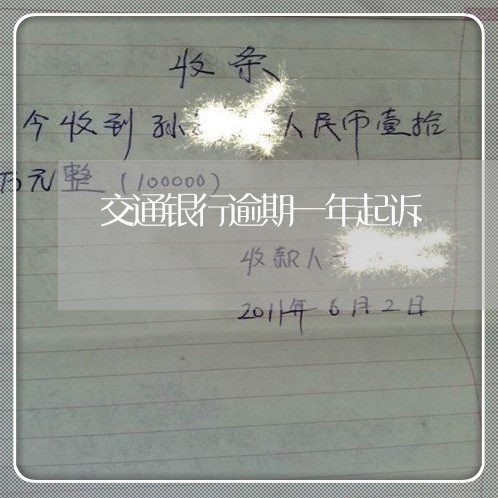 收条
今收到孙 人民币壹拾
万元整(100000)
交通银行逾期一年起诉
收款人
2011年6月2日